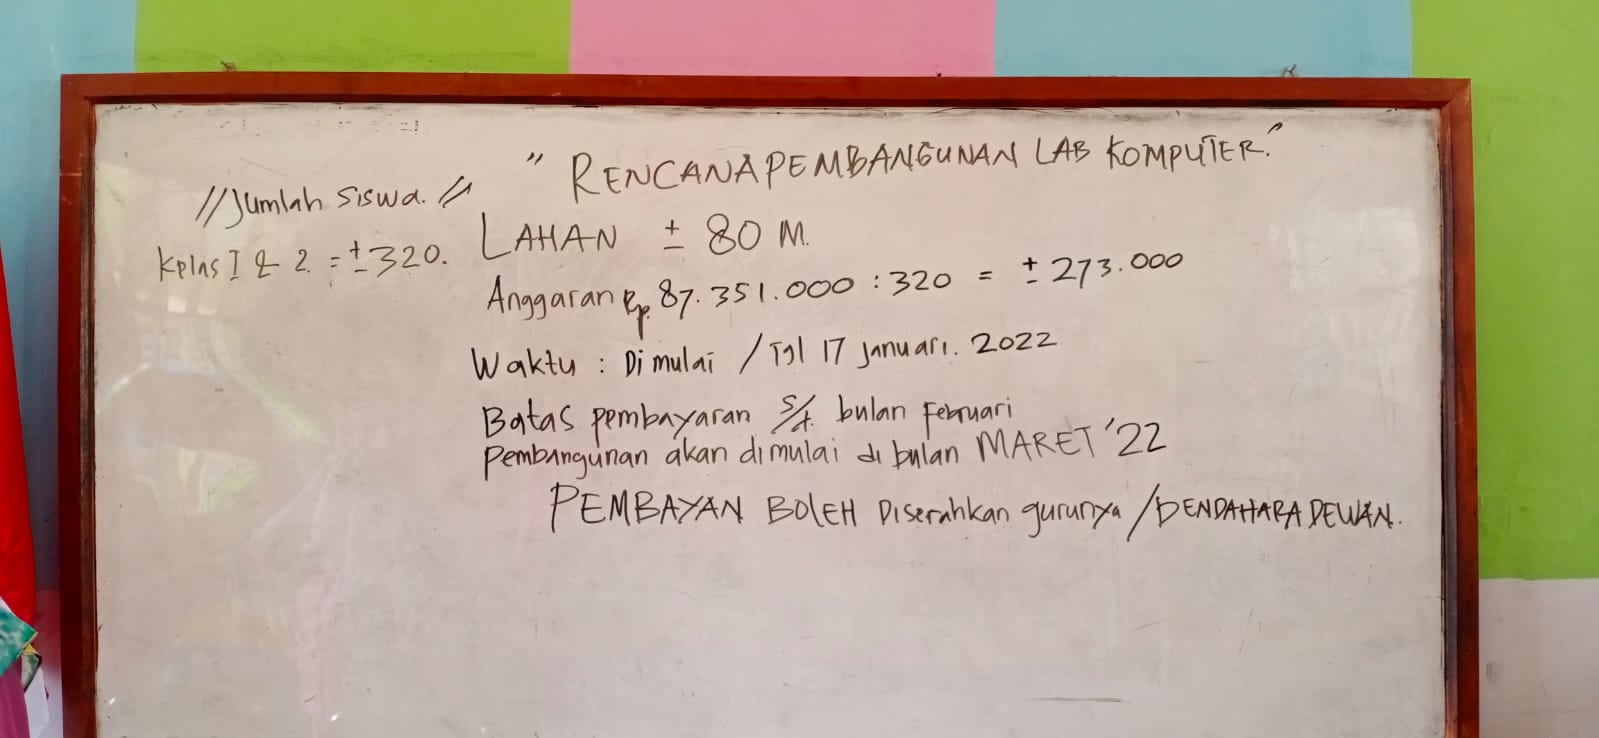 " RENCANA PEMBANGUNAN LAB KOMPUTER."
// Jumlah Siswa. //
Kelas I & 2 = ± 320.
LAHAN ± 80 M.
Anggaran Rp. 87.351.000 : 320 = ± 273.000
Waktu : Di mulai / Tgl 17 Januari. 2022
Batas pembayaran s/d. bulan Februari
Pembangunan akan dimulai di bulan MARET '22
PEMBAYAN BOLEH Diserahkan gurunya / BENDAHARA DEWAN.